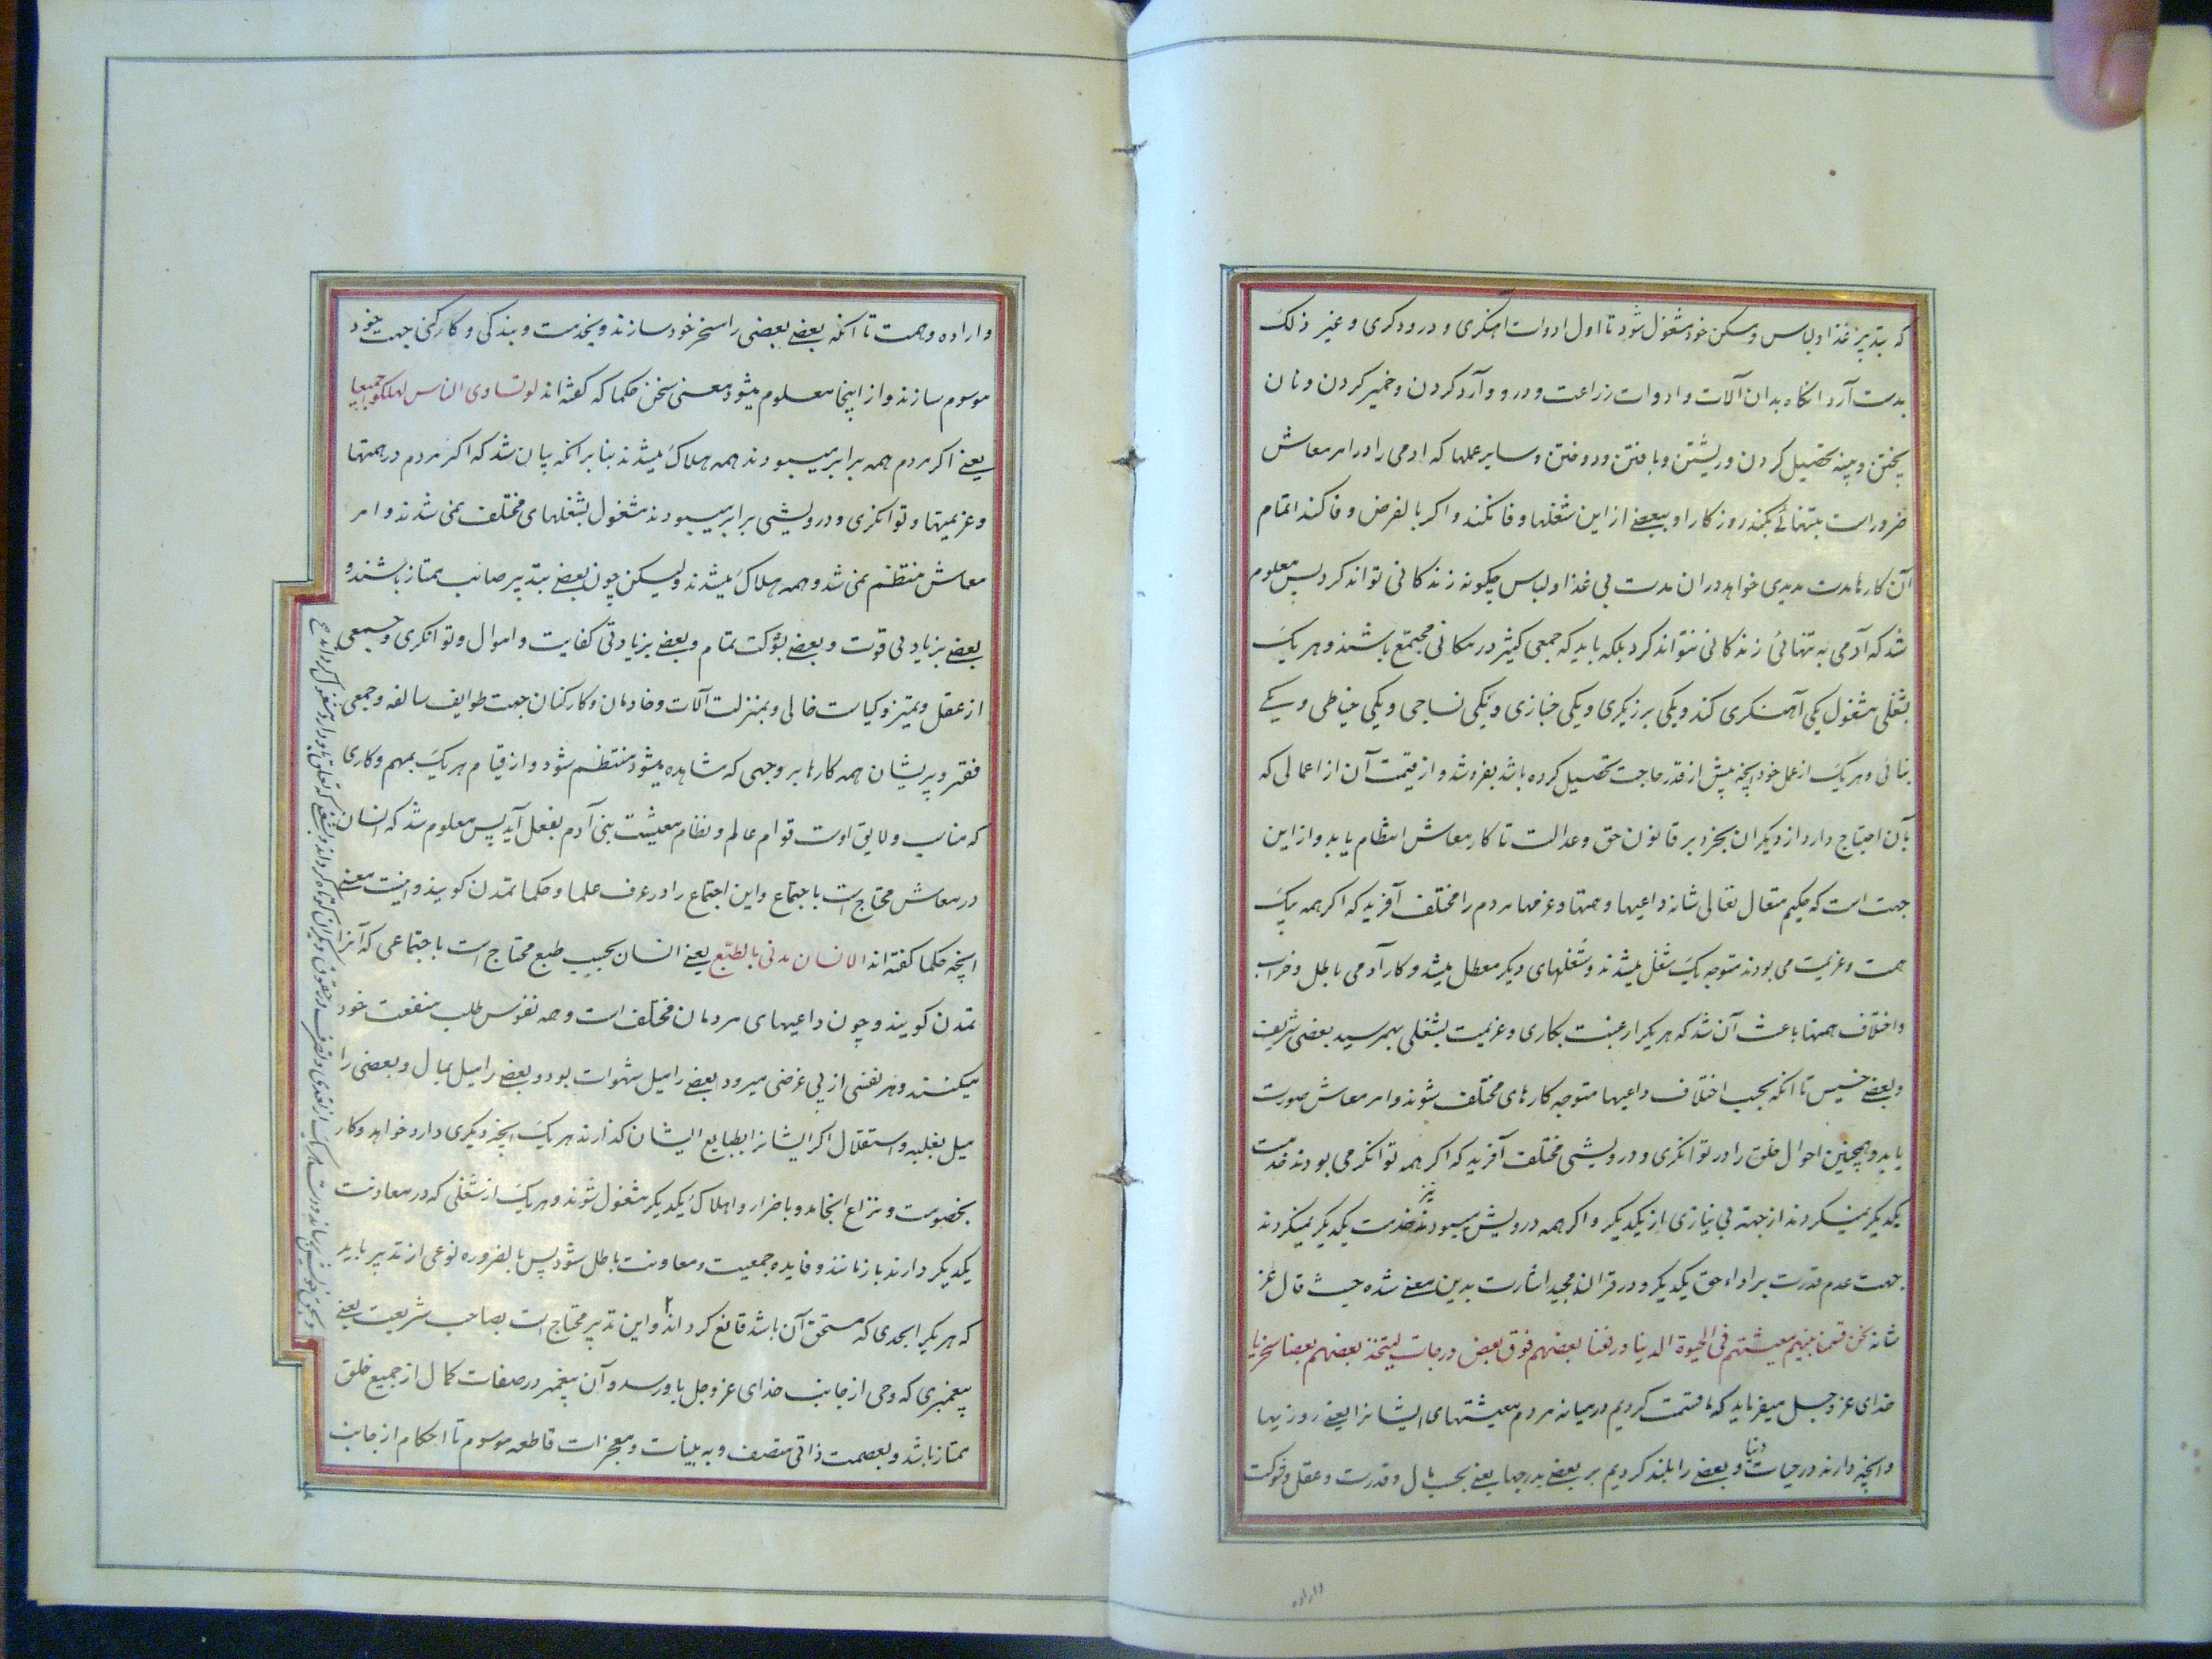 که بتدبیر غذا و لباس و مسکن خود مشغول شود تا اول ادوات اهنگری و درودگری و غیر ذلک
بدست آرد انگاه بدان آلات و ادوات زراعت و درو و آرد کردن و خمیر کردن و نان
پختن و پنبه تحصیل کردن و ریشتن و بافتن و دوختن و سایر عملها که ادمی را در امر معاش
ضرور است بتنهائی بکند روزکار او ببعضے از این شغلها وفا نکند و اکر بالفرض وفا کند اتمام
آن کارها مدت مدیدی خواهد در ان مدت بی غذا و لباس چکونه زندکانی تواند کرد پس معلوم
شد که آدمی به تنهائی زندکانی نتواند کرد بلکه باید که جمعی کثیر در مکانی مجتمع باشند و هر یک
بشغلی مشغول یکی آهنکری کند و یکی برزیکری و یکی خبازی و یکی نساجی و یکی خیاطی و یکے
بنائی و هر یک از عمل خود انچه پیش از قدر حاجت تحصیل کرده باشد بفروشد و از قیمت آن از اعمالی که
بآن احتیاج دارد از دیکران بخرد بر قانون حق و عدالت تا کار معاش انتظام یابد و از این
جهت است که حکیم متعال تعالی شانه داعیها و همتها و عزمها مردم را مختلف آفرید که اکر همه بیک
همت و عزیمت می بودند متوجه یک شغل میشدند و شغلهای دیکر معطل میشد و کار آدمی باطل و خراب
و اختلاف همتها باعث آن شد که هر یکرا رغبت بکاری و عزیمت بشغلی بهمرسید بعضی شریف
و بعضے خسیس تا انکه بحسب اختلاف داعیها متوجه کارهای مختلف شوند و امر معاش صورت
یابد و همچنین احوال خلق را در توانکری و درویشی مختلف آفرید که اکر همه توانکر می بودند خدمت
یکدیکر نمیکردند از جهة بی نیازی از یکدیکر و اکر همه درویش میبودند نیز خدمت یکدیکر نمیکردند
جهت عدم قدرت بر اداء حق یکدیکر و در قران مجید اشارت بدین معنے شده حیث قال عز
شانه نحن قسمنا بینهم معیشتهم فی الحیوة الدنیا و رفعنا بعضهم فوق بعض درجات لیتخذ بعضهم بعضا سخریا
خدای عز و جل میفرماید که ما قسمت کردیم در میانه مردم معیشتهای ایشانرا یعنے روزیها
و انچه دارند در حیات دنیا و بعضے را بلند کردیم بر بعضے بدرجها یعنے بحسب مال و قدرت و عقل و شوکت
و اراده
و اراده و همت تا انکه بعضے بعضی را مسخر خود سازند و بخدمت و بندکی و کارکنی جهت خود
موسوم سازند و از اینجا معلوم میشود معنی سخن حکما که کفته اند لو تساوی الناس لهلکوا جمیعا
یعنے اکر مردم همه برابر میبودند همه هلاک میشدند بنا بر انکه بیان شد که اکر مردم در همتها
و عزیمتها و توانکری و درویشی برابر میبودند مشغول بشغلهای مختلف نمی شدند و امر
معاش منتظم نمی شد و همه هلاک میشدند ولیکن چون بعضے بتدبیر صائب ممتاز باشند و
بعضے بزیادتی قوت و بعضے بشوکت تمام و بعضے بزیادتی کفایت و اموال و توانکری و جمعی
از عقل و تمیز و کیاست خالی و بمنزلت آلات و خادمان و کارکنان جهت طوایف سالفه و جمعی
فقیر و پریشان همه کارها بر وجهی که مشاهده میشود منتظم شود و از قیام هر یک بمهم و کاری
که مناسب و لایق اوست قوام عالم و نظام معیشت بنی آدم بفعل آید پس معلوم شد که انسان
در معاش محتاج است باجتماع و این اجتماع را در عرف علما و حکما تمدن کویند و اینست معنے
انچه حکما کفته اند الانسان مدنی بالطبع یعنے انسان بحسب طبع محتاج است باجتماعی که آنرا
تمدن کویند و چون داعیهای مردمان مختلف است و همه نفوس طلب منفعت خود
میکنند و هر نفسی از پی غرضی میرود بعضے را میل شهوات بود و بعضے را میل بمال و بعضی را
میل بغلبه و استقلال اکر ایشانرا بطبایع ایشان کذارند هر یک انچه دیکری دارد خواهد و کار
بخصومت و نزاع انجامد و باضرار و اهلاک یکدیکر مشغول شوند و هر یک از شغلی که در معاونت
یکدیکر دارند باز مانند و فایده جمعیت و معاونت باطل شود پس بالضروره نوعی از تدبیر باید
که هر یکرا بحدی که مستحق آن باشد قانع کرداند ٢ و این تدبیر محتاج است بصاحب شریعت یعنے
پیغمبری که وحی از جانب خدای عز و جل باو رسد و آن پیغمبر در صفات کمال از جمیع خلق
ممتاز باشد و بعصمت ذاتی متصف و به بینات و معجزات قاطعه موسوم تا احکام از جانب
و بحق خویش رساند و دست هر یک از تعدی و تصرف در حقوق دیگران کوتاه کرداند و بشغلی که تعلق باو دارد مشغول کرداند